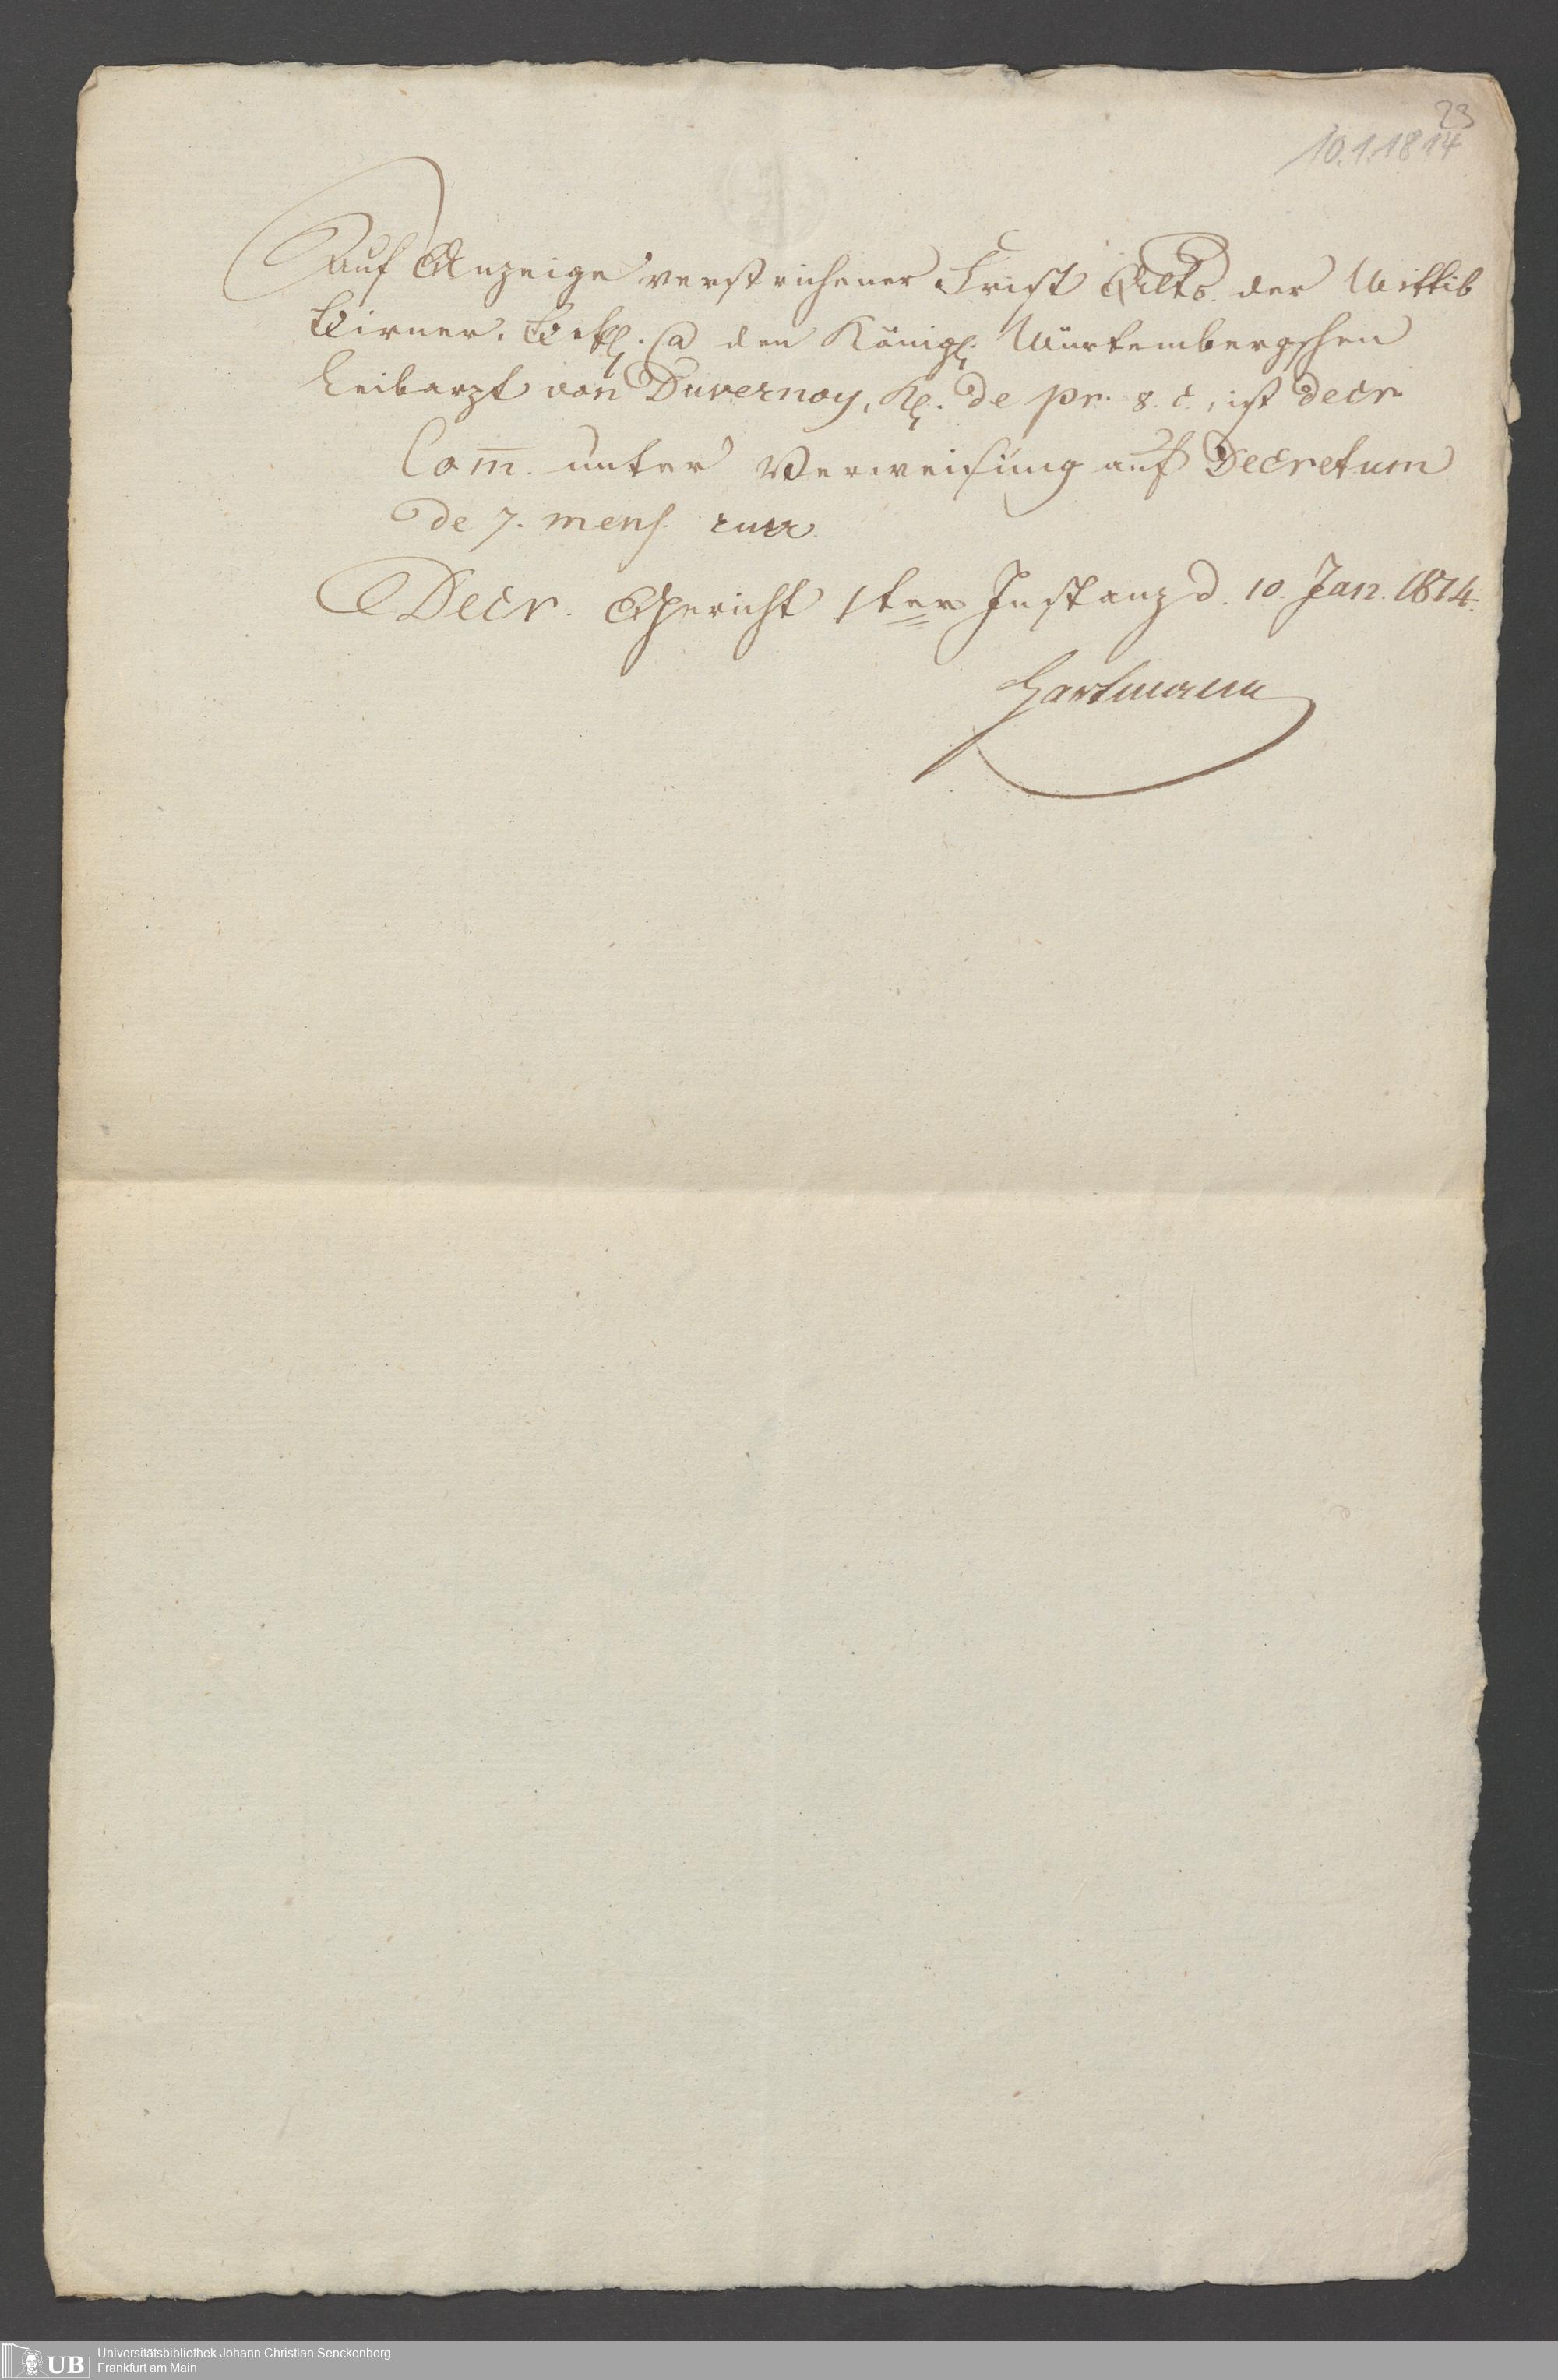 23
10.1.1814
Auf Anzeige verstrichener Frist der Wittib
den Königl. Würtembergschen
Leibarzt von Duvernoy, Kl. de pr. 8. c., ist decr
Com̅. unter Verweisung auf Decretum
de 7. mens. curr.
Decr. Gericht 1ter Instanz d. 10. Jan. 1814.
Hartmann
UB
Universitätsbibliothek Johann Christian Senckenberg
Frankfurt am Main